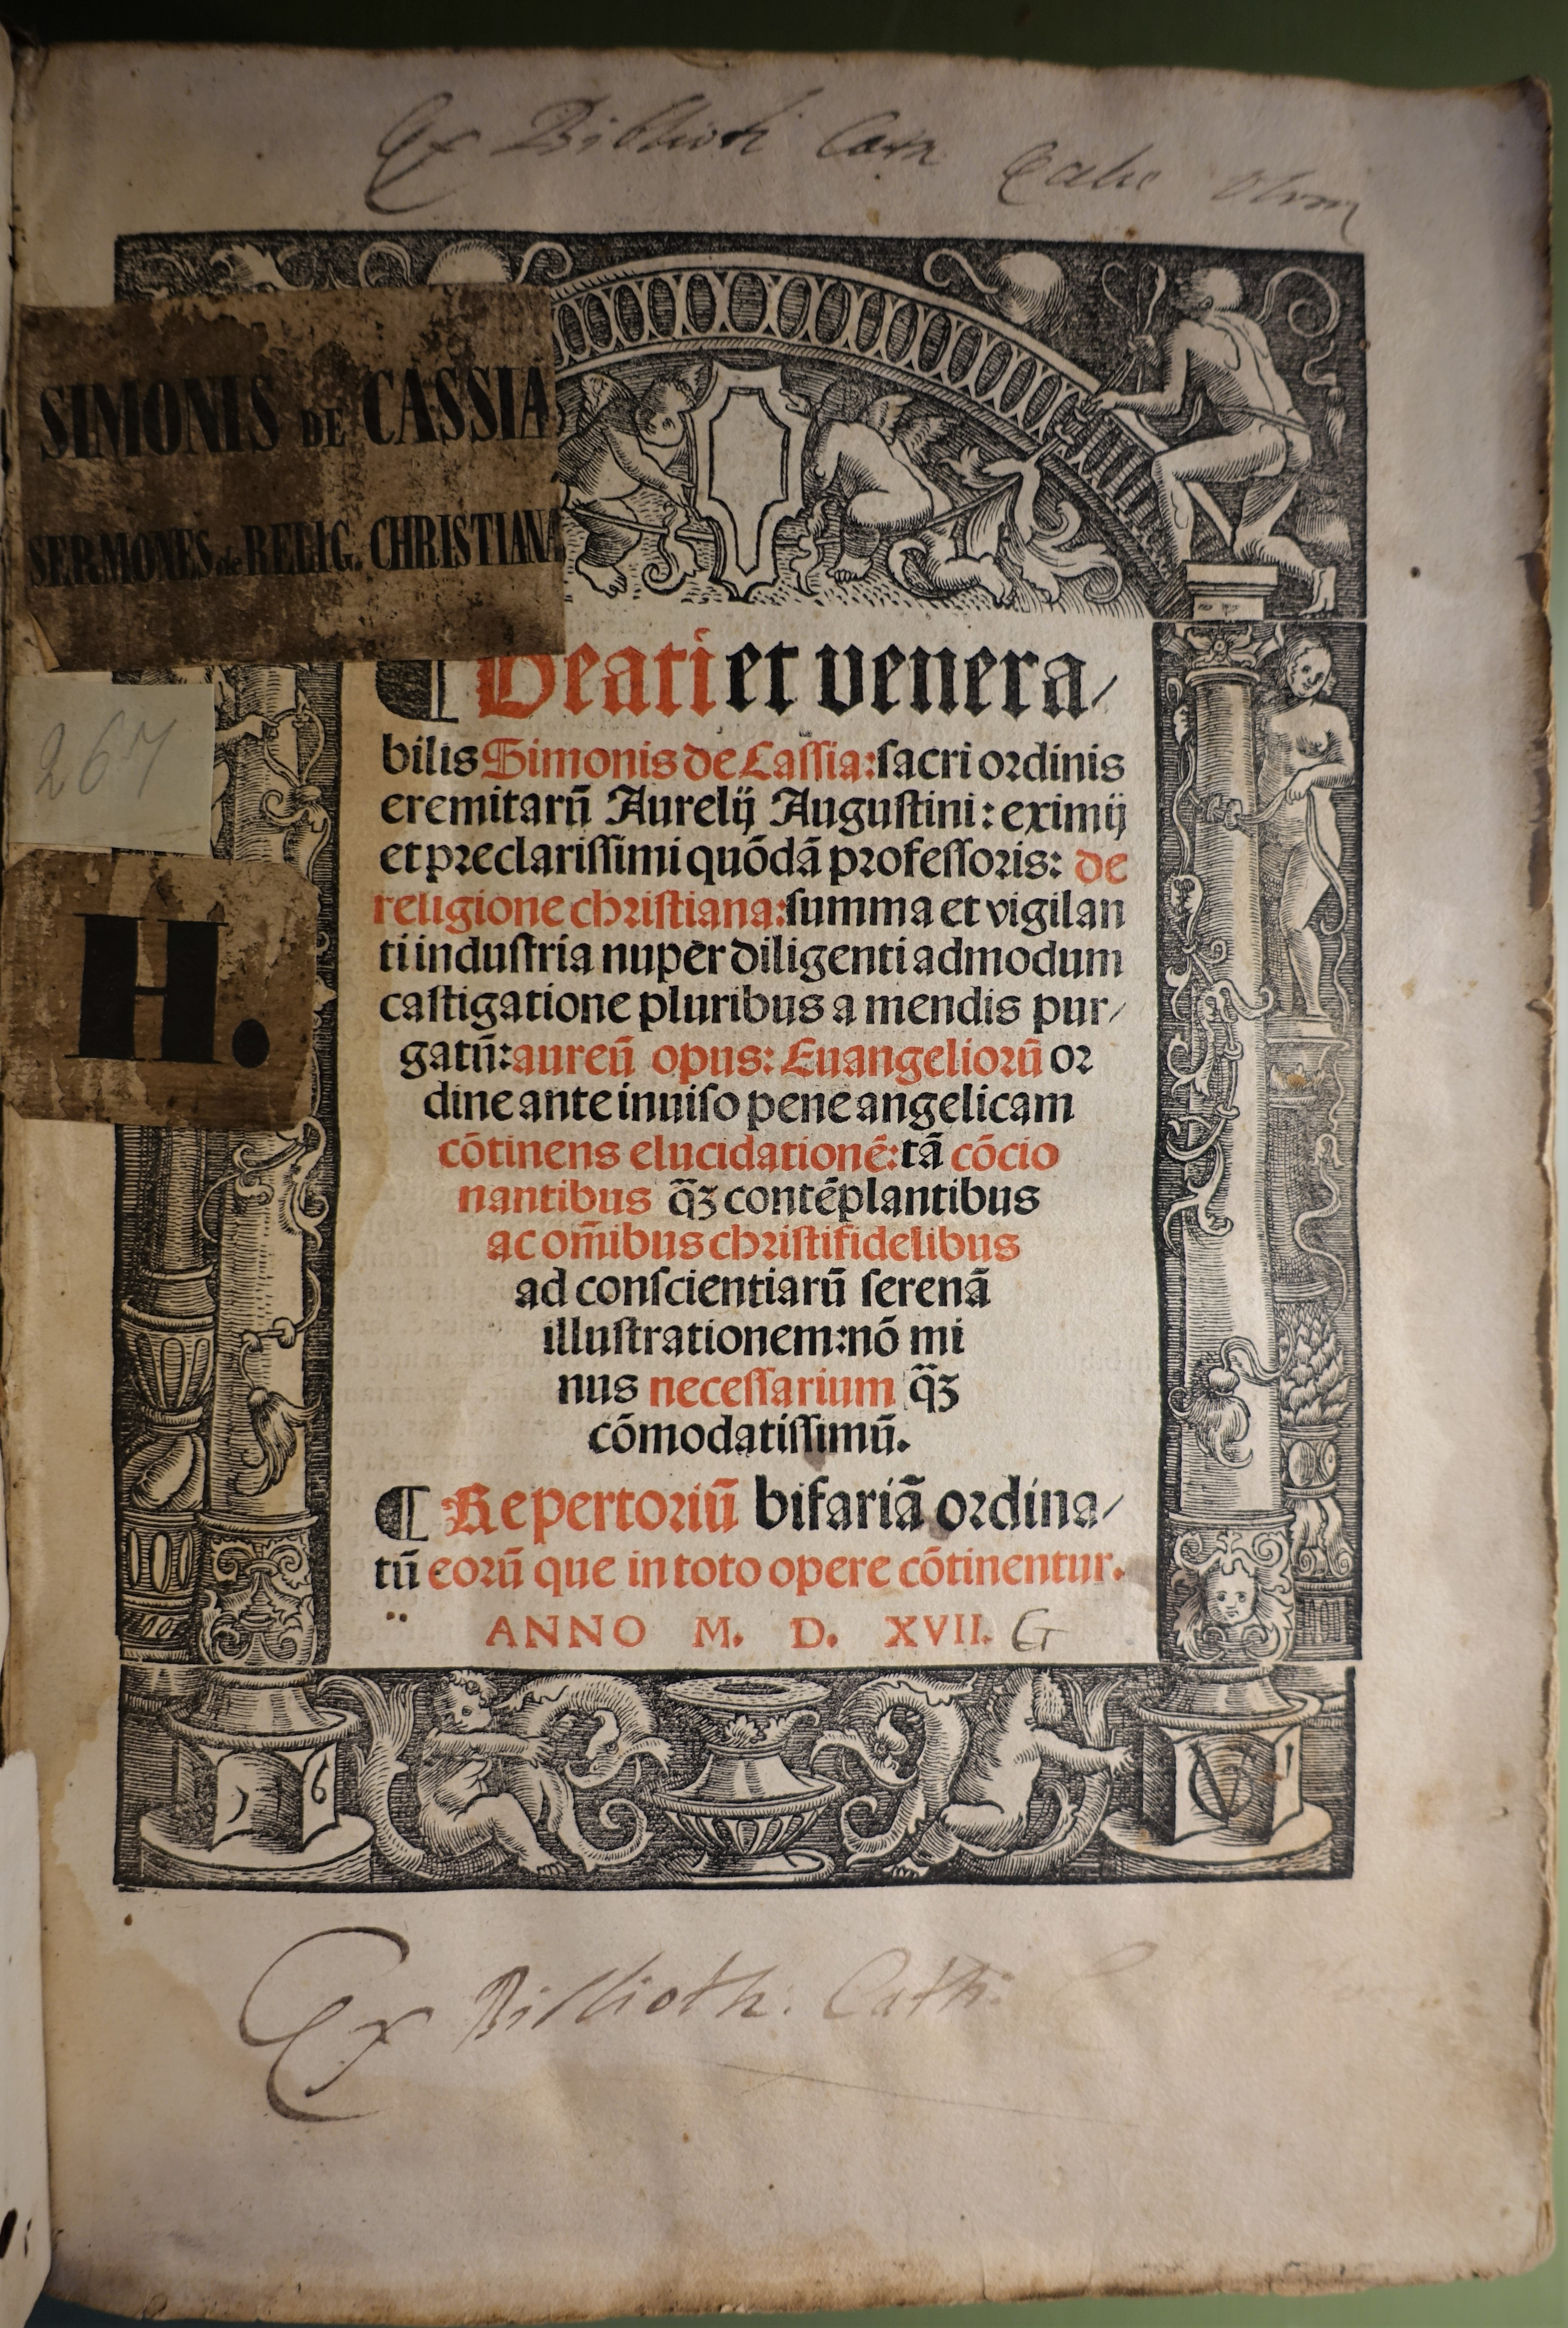 Ex Biblioth
SIMONIS DE CASSIA
SERMONES de RELIG. CHRISTIANA
¶ Beati et venera⸗
bilis Simonis de Cassia: sacri ordinis
eremitarū Aurelij Augustini: eximij
et preclarissimi quōdā professoris: de
religione christiana: summa et vigilan
ti industria nuper diligenti admodum
castigatione pluribus a mendis pur⸗
gatū: aureū opus: Euangeliorū or
dine ante inuiso pene angelicam
cōtinens elucidationē: tā cōcio
nantibus q̄ꝫ contēplantibus
ac om̄ibus christifidelibus
ad conscientiarū serenā
illustrationem: nō mi
nus necessarium q̄ꝫ
cōmodatissimū.
¶ Repertoriū bifariā ordina⸗
tū eorū que in toto opere cōtinentur.
ANNO M. D. XVII. G
267
H.
Ex Biblioth. Cath.